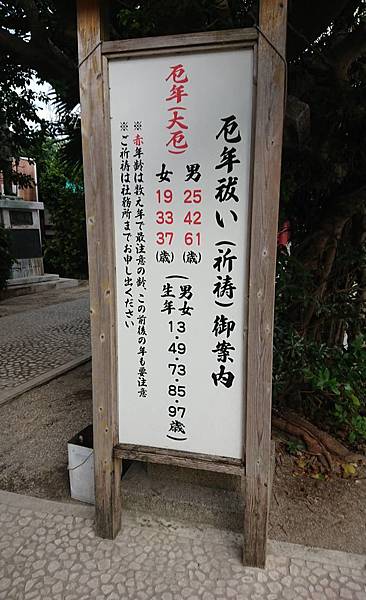 厄年祓い(祈祷)御案内
厄年(大厄)
男 25 42 61(歳)
女 19 33 37(歳)
(男女生年 13・49・73・85・97歳)
※赤年齢は数え年で最注意の齢、この前後の年も要注意
※ご祈祷は社務所までお申し出ください